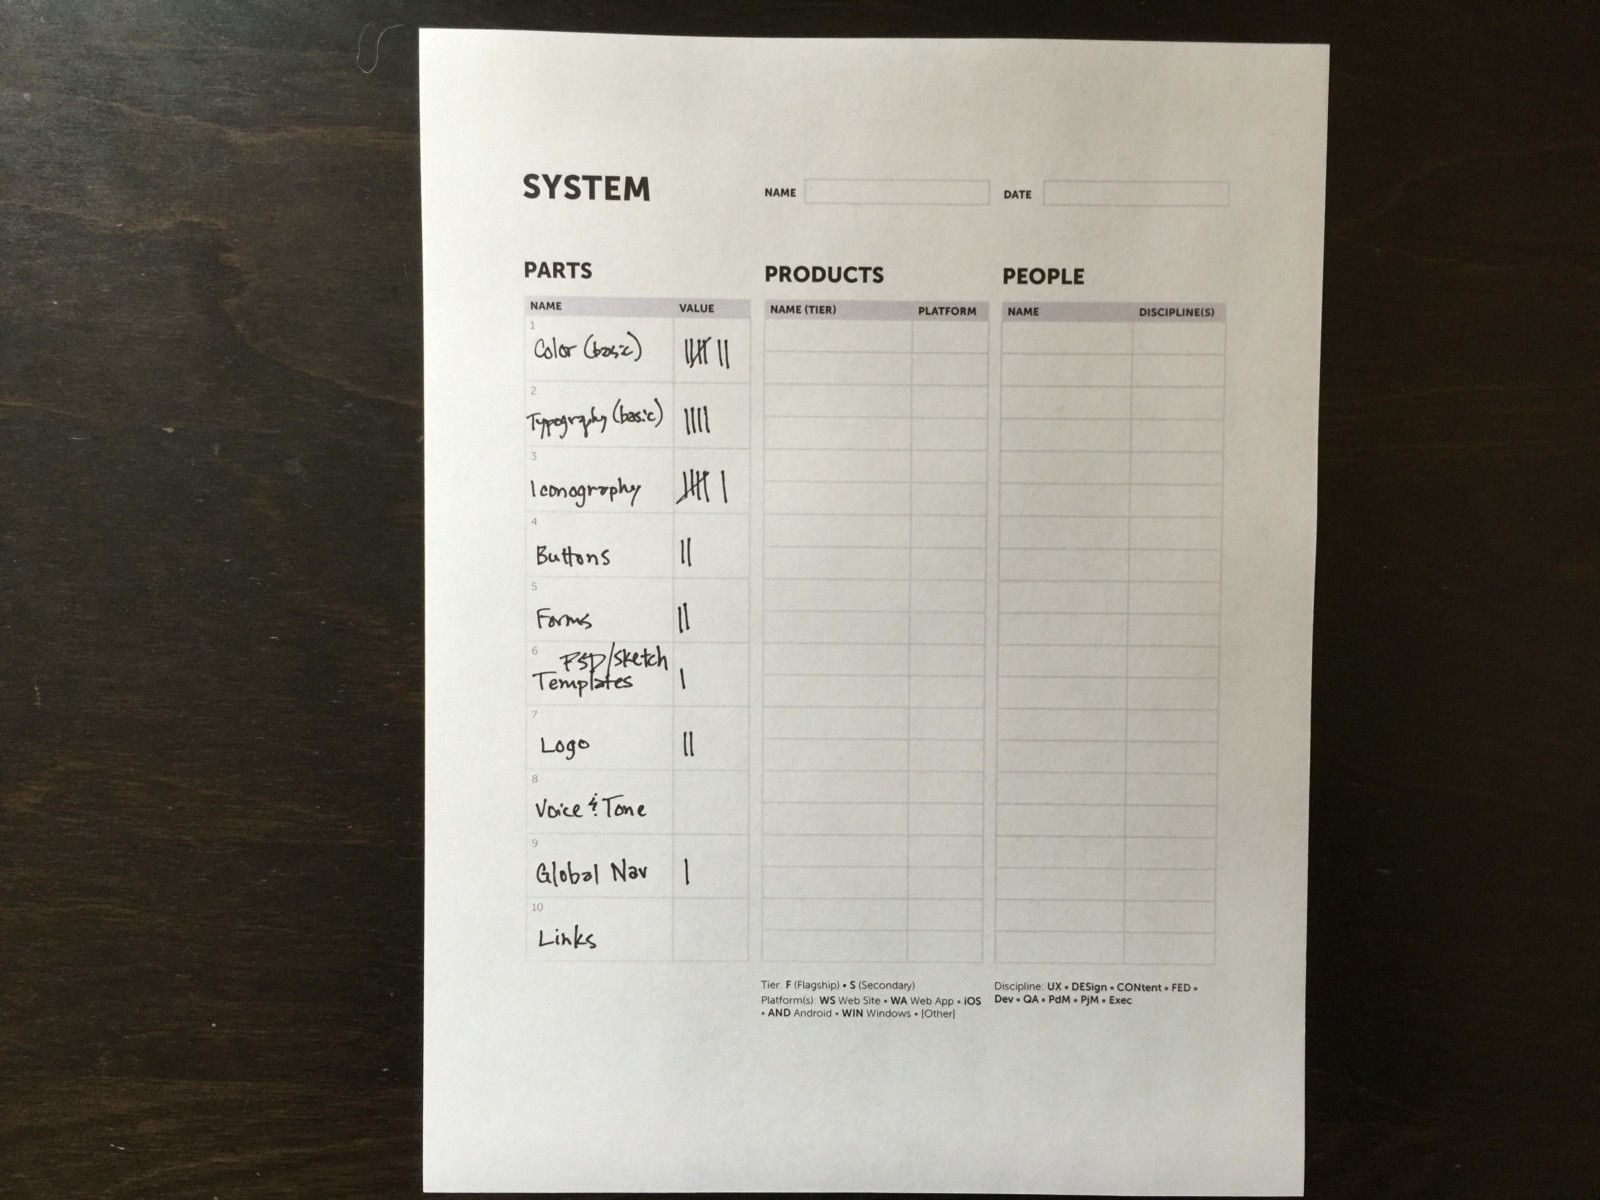 SYSTEM
NAME
DATE
PARTS
NAME VALUE
1
Color (basic) 卌 ||
2
Typography (basic) ||||
3
Iconography 卌 |
4
Buttons ||
5
Forms ||
6 PSD/Sketch
Templates |
7
Logo ||
8
Voice & Tone
9
Global Nav |
10
Links
PRODUCTS
NAME (TIER) PLATFORM
Tier: F (Flagship) • S (Secondary)
Platform(s): WS Web Site • WA Web App • iOS
• AND Android • WIN Windows • [Other]
PEOPLE
NAME DISCIPLINE(S)
Discipline: UX • DESign • CONtent • FED •
Dev • QA • PdM • PjM • Exec